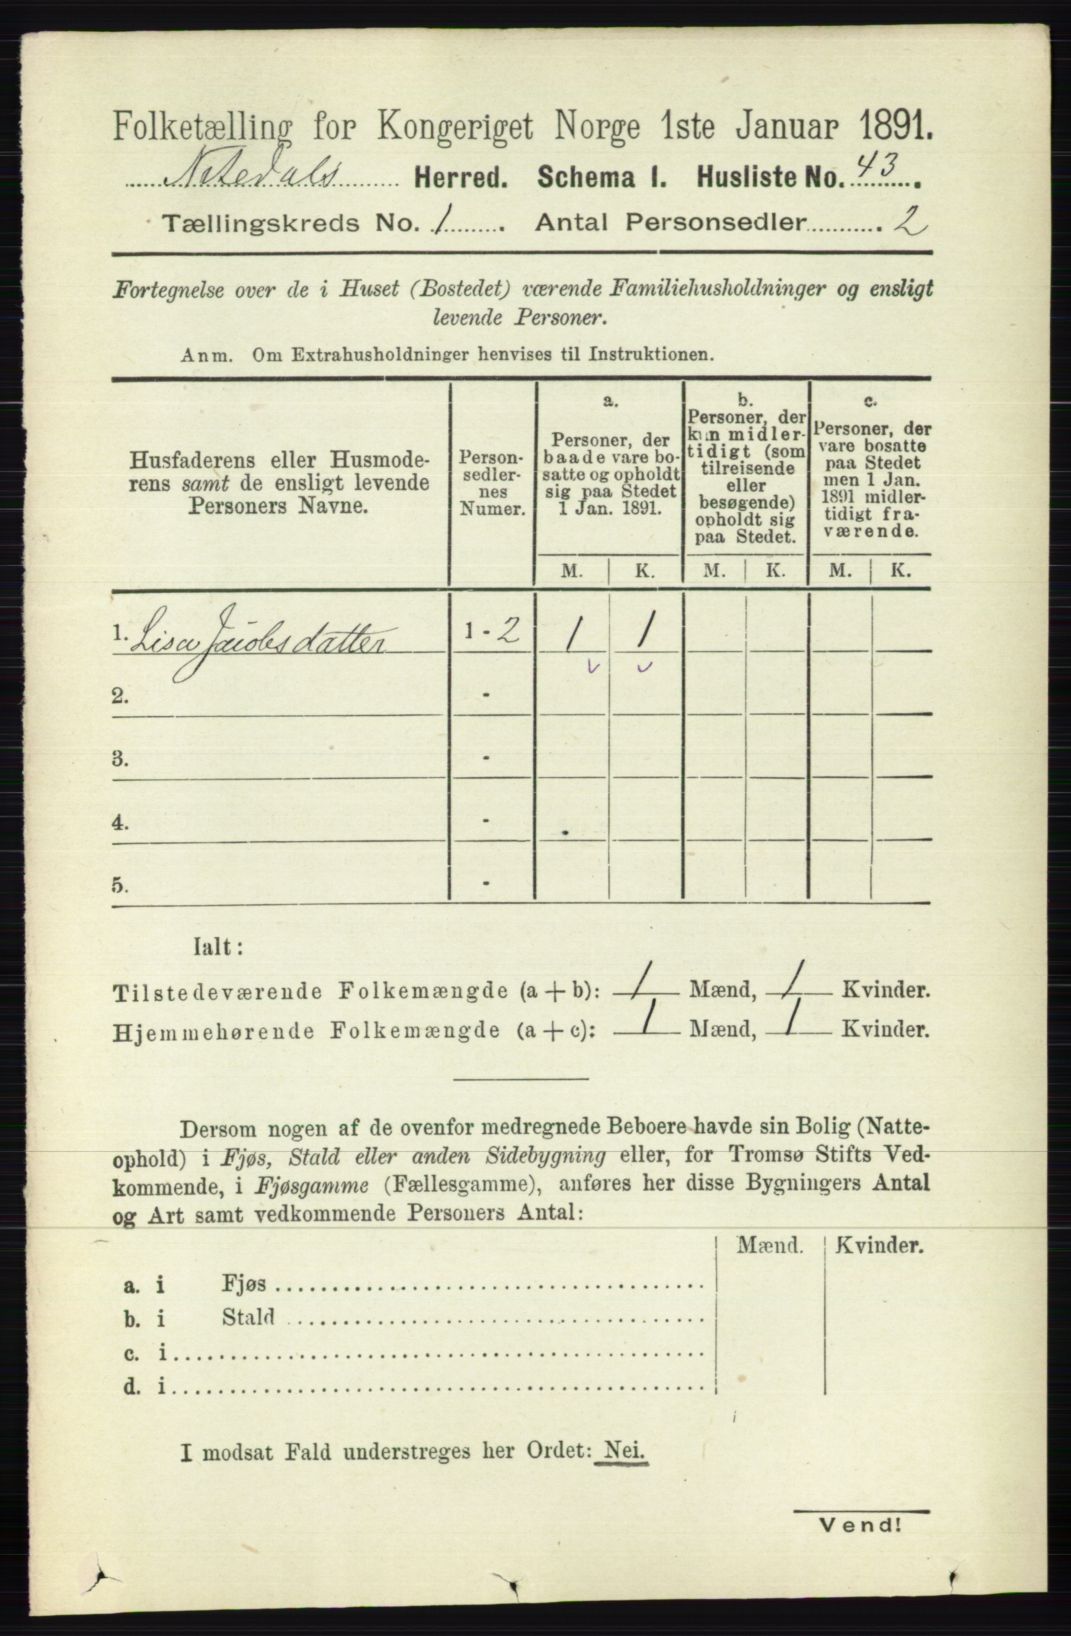 Folketælling for Kongeriget Norge 1ste Januar 1891.
Nitedals Herred. Schema I. Husliste No. 43.
Tællingskreds No. 1. Antal Personsedler. 2
Fortegnelse over de i Huset (Bostedet) værende Familiehusholdninger og ensligt
levende Personer.
Anm. Om Extrahusholdninger henvises til Instruktionen.
Husfaderens eller Husmode-
rens samt de ensligt levende
Personers Navne.
Person-
sedler-
nes
Numer.
a.
Personer, der
baade vare bo-
satte og opholdt
sig paa Stedet
1 Jan. 1891.
b.
Personer, der
kun midler-
tidigt (som
tilreisende
eller
besøgende)
opholdt sig
paa Stedet.
c.
Personer, der
vare bosatte
paa Stedet
men 1 Jan.
1891 midler-
tidigt fra-
værende.
M. K. M. K. M. K.
1. Lisa Jacobsdatter 1 - 2 1 1
2. -
3. -
4. -
5. -
Ialt:
Tilstedeværende Folkemængde (a + b): 1 Mænd, 1 Kvinder.
Hjemmehørende Folkemængde (a + c): 1 Mænd, 1 Kvinder.
Dersom nogen af de ovenfor medregnede Beboere havde sin Bolig (Natte-
ophold) i Fjøs, Stald eller anden Sidebygning eller, for Tromsø Stifts Ved-
kommende, i Fjøsgamme (Fællesgamme), anføres her disse Bygningers Antal
og Art samt vedkommende Personers Antal:
Mænd. Kvinder.
a. i Fjøs
b. i Stald
c. i
d. i
I modsat Fald understreges her Ordet: Nei.
Vend!